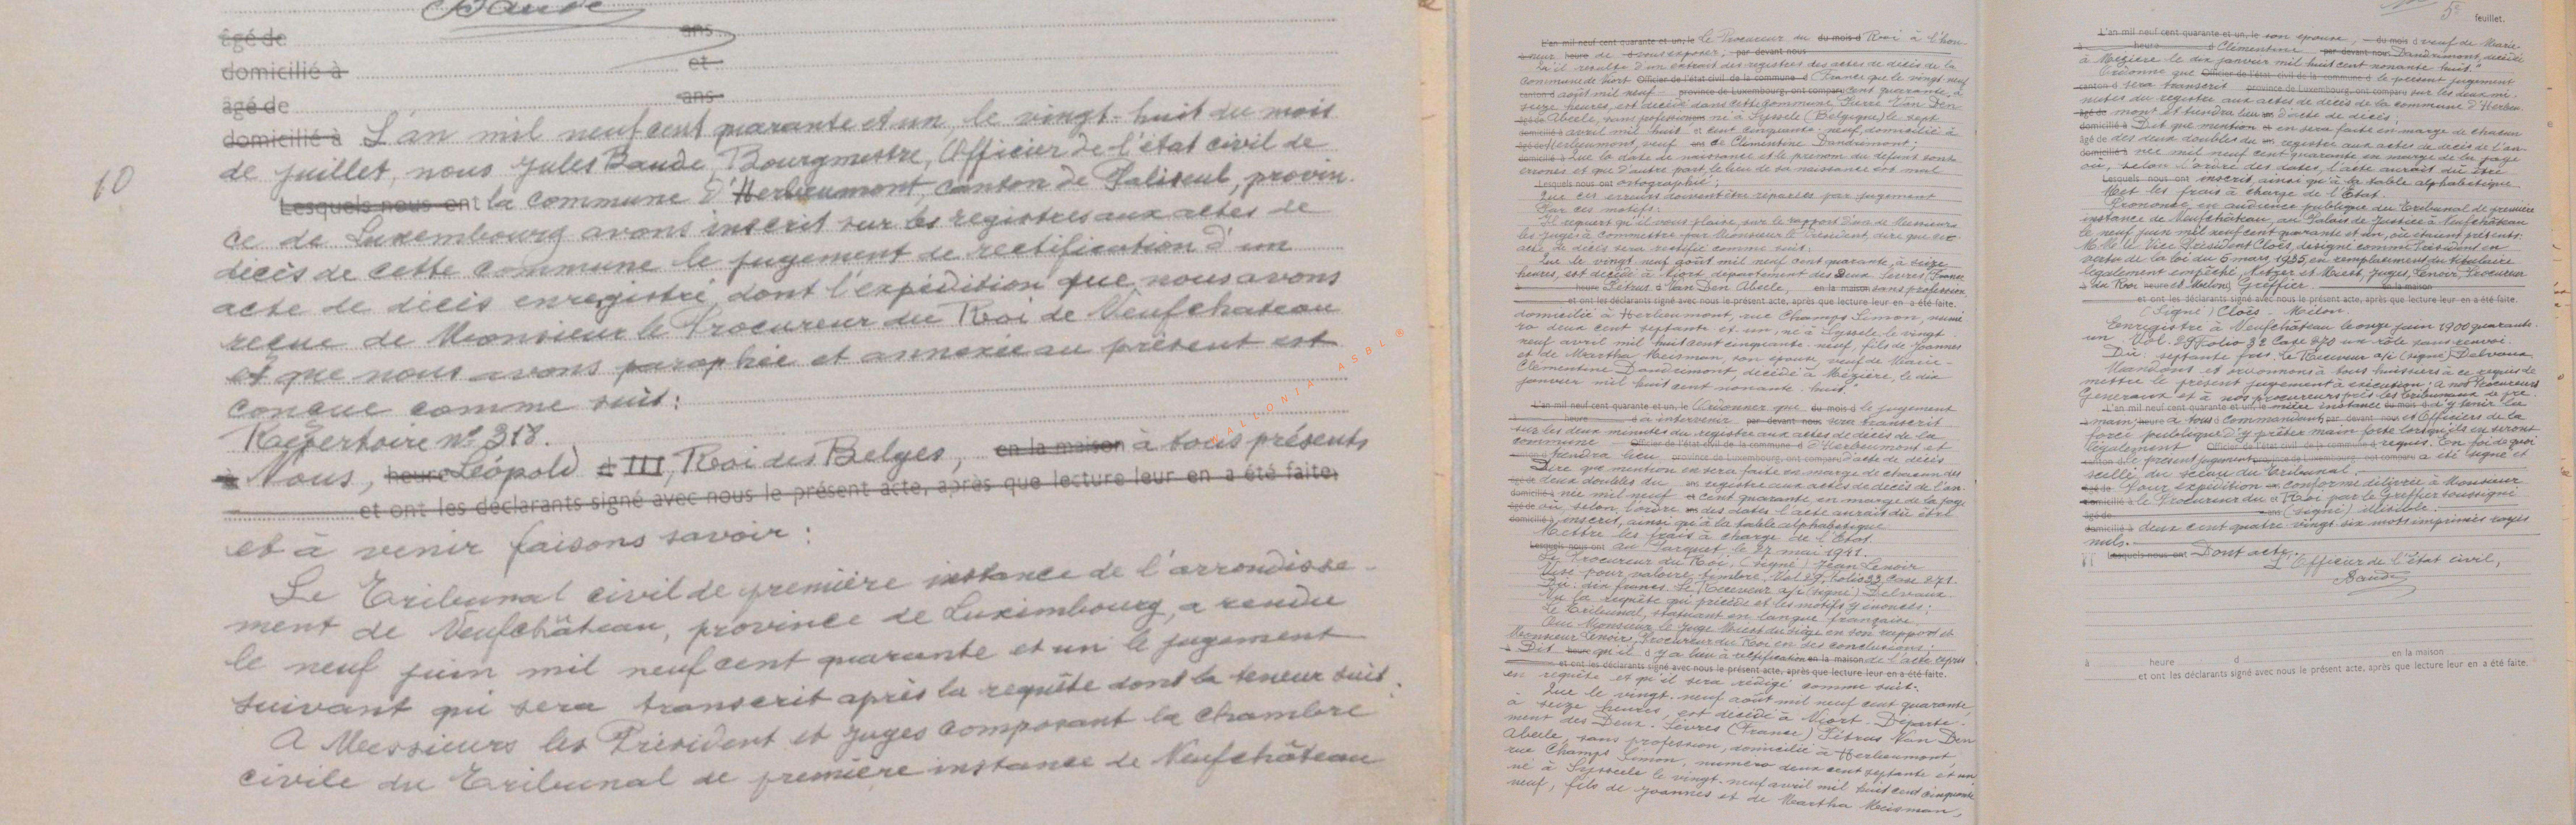 Baude
âgé de ans
domicilié à et
âgé de ans
domicilié à L'an mil neuf cent quarante et un, le vingt-huit du mois
de juillet, nous Jules Baude, Bourgmestre, Officier de l'état civil de
10
Lesquels nous ont la commune d'Herbeumont, canton de Paliseul, provin-
ce de Luxembourg avons inscrit sur les registres aux actes de
décès de cette commune le jugement de rectification d'un
acte de décès enregistré, dont l'expédition que nous avons
reçue de Monsieur le Procureur du Roi de Neufchateau
et que nous avons paraphée et annexée au présent est
conçue comme suit:
Répertoire n° 318.
à Nous, heure Léopold d III, Roi des Belges, en la maison à tous présents
et ont les déclarants signé avec nous le présent acte, après que lecture leur en a été faite,
et à venir faisons savoir:
Le Tribunal civil de première instance de l'arrondisse-
ment de Neufchâteau, province de Luxembourg, a rendu
le neuf juin mil neuf cent quarante et un le jugement
suivant qui sera transcrit après la requête dont la teneur suit:
A Messieurs les Président et Juges composant la chambre
civile du Tribunal de première instance de Neufchâteau
WALLONIA ASBL ®
L'an mil neuf cent quarante et un, le Le Procureur du du mois d Roi à l'hon-
neur heure de d vous exposer, par devant nous
Qu'il résulte d'un extrait des registres des actes de décès de la
commune de Niort Officier de l'état civil de la commune d (France que le vingt neuf
canton d août mil neuf province de Luxembourg, ont comparu cent quarante, à
seize heures, est décédé dans cette commune Pierre Van Den
âgé de Abeele, sans profession né à Syssele (Belgique) le sept
domicilié à avril mil huit et cent cinquante-neuf, domicilié à
âgé de Herbeumont, veuf de Clémentine Dandrimont;
domicilié à Que la date de naissance et le prénom du défunt sont
erronés et que d'autre part, le lieu de sa naissance est mal
Lesquels nous ont ortographié;
Que ces erreurs doivent être réparées par jugement
Par ces motifs:
Il requert qu'il vous plaise, sur le rapport d'un de Messieurs
les juges à commettre par Monsieur le Président, dire que cet
acte de décès sera rectifié comme suit:
Que le vingt neuf août mil neuf cent quarante, à seize
heures, est décédé à Niort, département des Deux Sèvres, France
à heure Pétrus d Van Den Abeele, en la maison sans profession,
et ont les déclarants signé avec nous le présent acte, après que lecture leur en a été faite.
domicilié à Herbeumont, rue Champs Simon, numé-
ro deux cent septante et un, né à Syssele le vingt
neuf avril mil huit cent cinquante-neuf, fils de Joannes
et de Martha Meisman, son épouse, veuf de Marie-
Clémentine Dandrimont, décédé à Mézière, le dix
janvier mil huit cent nonante-huit"
L'an mil neuf cent quarante et un, le Ordonner que du mois d le jugement
à heure d à intervenir par devant nous sera transcrit
sur les deux minutes du registre aux actes de décès de la
commune Officier de l'état civil de la commune d d'Herbeumont et
canton d tiendra lieu province de Luxembourg, ont comparu d'acte de décès
Dire que mention en sera faite en marge de chacun des
âgé de deux doubles du ans registre aux actes de décès de l'an-
domicilié à née mil neuf et cent quarante, en marge de la page
âgé de où, selon l'ordre ans des dates l'acte aurait dû être
domicilié à inscrit, ainsi qu'à la table alphabétique.
Mettre les frais à charge de l'Etat.
Lesquels nous ont au Parquet, le 27 mai 1941.
Le Procureur du Roi, (signé) Jean Lenoir
Visé pour valoir timbre, Vol 29, Folio 33, Case 271.
Dû: dix francs. Le Receveur a/i (signé) Delvaux.
Vu la requête qui précède et les motifs y énoncés;
Le Tribunal, statuant en langue française,
Oui Monsieur le Juge Miest du siège en son rapport et
Monsieur Lenoir, Procureur du Roi en ses conclusions;
à Dit heure qu'il d y a lieu à rectification en la maison de l'acte repris
et ont les déclarants signé avec nous le présent acte, après que lecture leur en a été faite.
en requête et qu'il sera rédigé comme suit:
Que le vingt-neuf août mil neuf cent quarante,
à seize heures, est décédé à Niort-Departe-
ment des Deux-Sèvres (France) Pétrus Van Den
Abeele, sans profession, domicilié à Herbeumont,
rue Champs Simon, numéro deux cent septante et un
né à Syssele le vingt-neuf avril mil huit cent cinquante
neuf, fils de Joannes et de Martha Meisman,
5e feuillet.
L'an mil neuf cent quarante et un, le son épouse, du mois d veuf de Marie-
à heure d Clémentine par devant nous Dandrimont, décédé
à Mézière le dix janvier mil huit cent nonante huit."
Ordonne que Officier de l'état civil de la commune d le présent jugement
canton d sera transcrit province de Luxembourg, ont comparu sur les deux mi-
nutes du registre aux actes de décès de la commune d'Herbeu-
âgé de mont et tiendra lieu d'acte de décès;
domicilié à Dit que mention et en sera faite en marge de chacun
âgé de des deux doubles du registre aux actes de décès de l'an-
domicilié à née mil neuf cent quarante en marge de la page
où, selon l'ordre des dates, l'acte aurait dû être
Lesquels nous ont inscrit, ainsi qu'à la table alphabétique.
Met les frais à charge de l'Etat.
Prononcé en audience publique du Tribunal de première
instance de Neufchâteau, au Palais de Justice à Neufchâteau
le neuf juin mil neuf cent quarante et un, où étaient présents:
M.M. le Vice Président Cloès, désigné comme Président en
vertu de la loi du 5 mars 1935, en remplacement du titulaire
légalement empêché, et Miest, Juges, Lenoir, Procureur
à du Roi heure et Melon, Greffier. en la maison
et ont les déclarants signé avec nous le présent acte, après que lecture leur en a été faite.
(Signé) Cloès - Melon.
Enregistré à Neufchâteau le onze juin 1900 quarante-
un Vol. 29 Folio 32 Case 270 un rôle sans renvoi.
Dû: septante frs. Le Receveur a/i (signé) Delvaux
Mandons et ordonnons à tous huissiers à ce requis de
mettre le présent jugement à exécution; à nos Procureurs
Généraux et à nos procureurs près les tribunaux de pre-
L'an mil neuf cent quarante et un, le mière instance du mois d d'y tenir la
à main, heure à tous d commandants par devant nous et Officiers de la
force publique d'y prêter main forte lorsqu'ils en seront
légalement Officier de l'état civil de la commune d requis. En foi de quoi
canton d le présent jugement province de Luxembourg, ont comparu a été signé et
scellé du sceau du Tribunal.
âgé de Pour expédition conforme délivrée à Monsieur
domicilié à le Procureur du et Roi par le Greffier soussigné
âgé de ans (signé) illisible.
domicilié à deux cent quatre vingt six mots imprimés rayés
nuls.
Lesquels nous ont Dont acte.
L'Officier de l'état civil,
Baude
à heure d en la maison
et ont les déclarants signé avec nous le présent acte, après que lecture leur en a été faite.